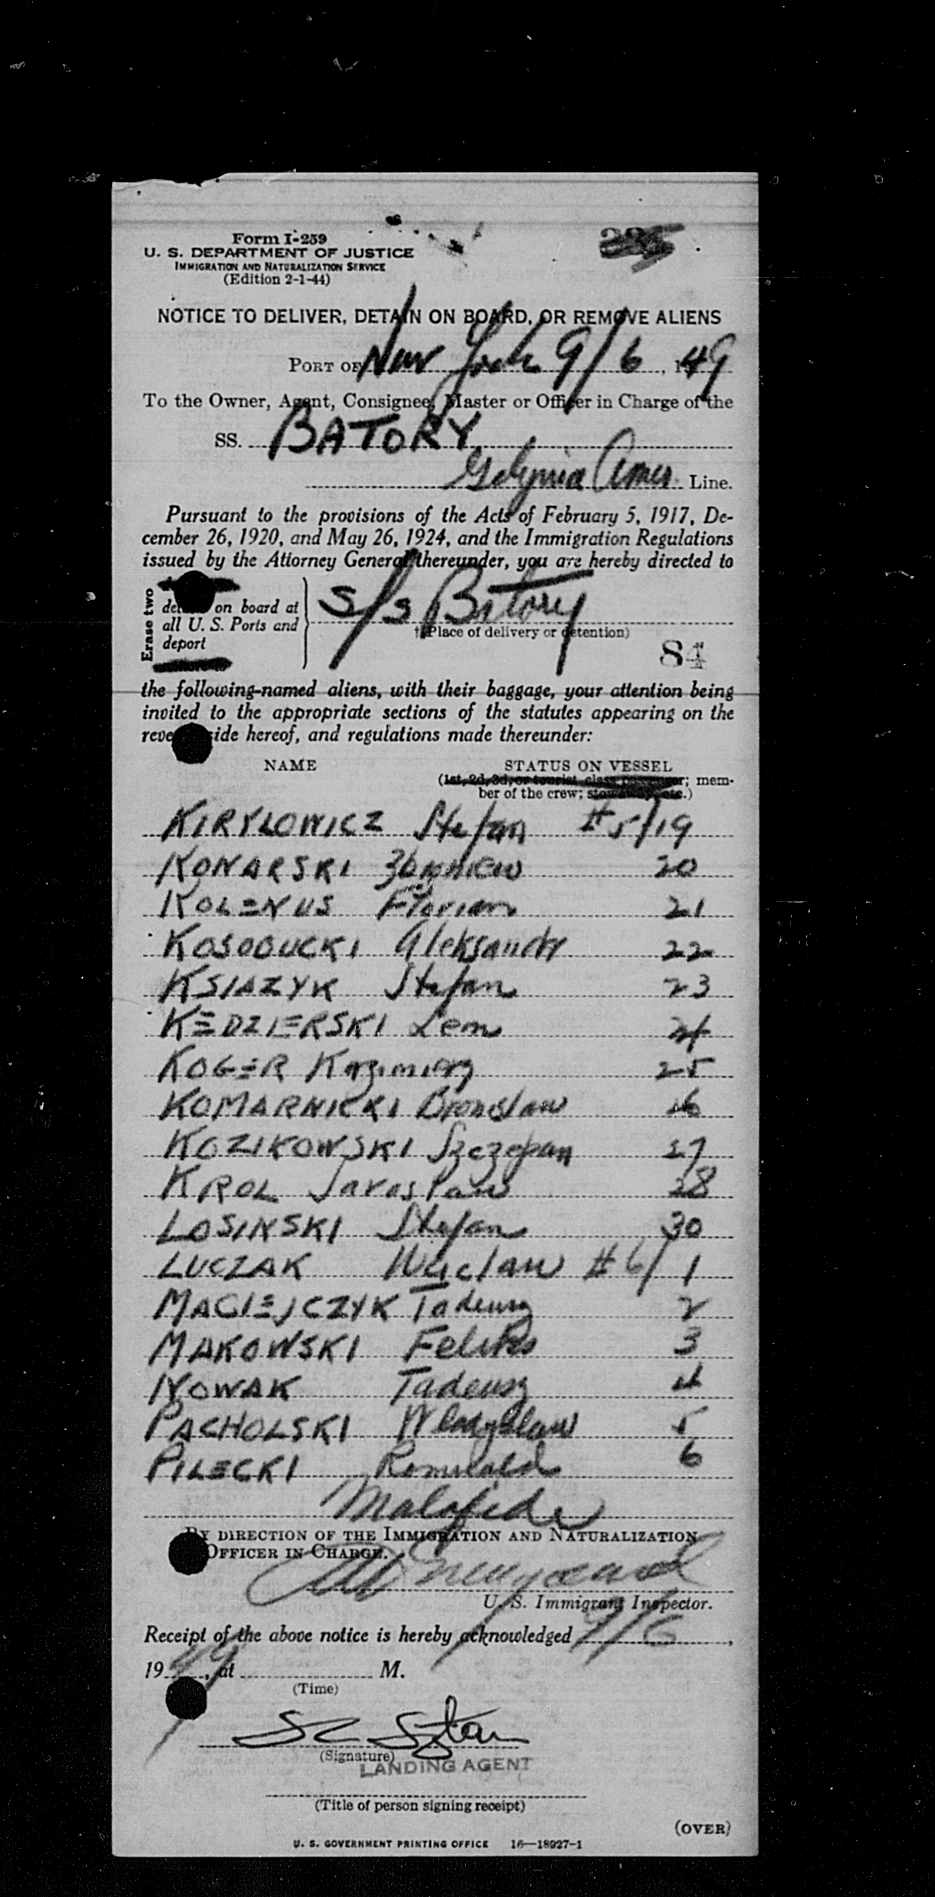 Form I-259
U. S. DEPARTMENT OF JUSTICE
IMMIGRATION AND NATURALIZATION SERVICE
(Edition 2-1-44)
NOTICE TO DELIVER, DETAIN ON BOARD, OR REMOVE ALIENS
PORT OF New York 9/6, 1949
To the Owner, Agent, Consignee, Master or Officer in Charge of the
SS. BATORY
Gdynia Amer. Line.
Pursuant to the provisions of the Acts of February 5, 1917, De-
cember 26, 1920, and May 26, 1924, and the Immigration Regulations
issued by the Attorney General thereunder, you are hereby directed to
Erase two
on board at
all U. S. Ports and
deport
S/S Batory
(Place of delivery or detention)
84
the following-named aliens, with their baggage, your attention being
invited to the appropriate sections of the statutes appearing on the
reve side hereof, and regulations made thereunder:
NAME STATUS ON VESSEL
(1st, 2d, 3d, or tourist class passenger; mem-
ber of the crew; stowaway, etc.)
KIRYLOWICZ Stefan #5/19
KONARSKI Zbigniew 20
KOLENUS Florian 21
KOSODUCKI Aleksandr 22
KSIAZYK Stefan 23
KEDZIERSKI Leon 24
KOGER Kazimierz 25
KOMARNICKI Bronslaw 26
KOZIKOWSKI Szczepan 27
KROL Jaroslaw 28
LOSINSKI Stefan 30
LUCZAK Waclaw #6/1
MACIEJCZYK Tadeusz 2
MAKOWSKI Feliks 3
NOWAK Tadeusz 4
PACHOLSKI Wladyslaw 5
PILECKI Romuald 6
Malafide
BY DIRECTION OF THE IMMIGRATION AND NATURALIZATION
OFFICER IN CHARGE.
U. S. Immigrant Inspector.
Receipt of the above notice is hereby acknowledged 9/6,
1949, at M.
(Time)
(Signature)
LANDING AGENT
(Title of person signing receipt)
(OVER)
U. S. GOVERNMENT PRINTING OFFICE 16—18927-1